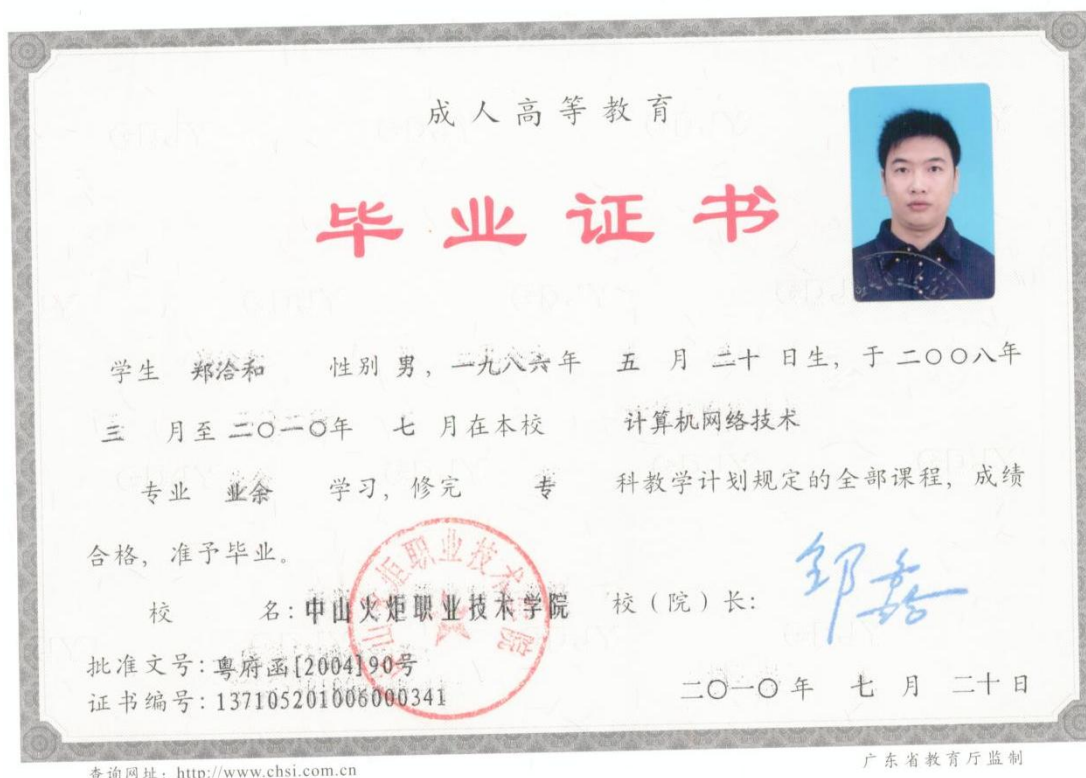 成人高等教育
毕业证书
学生 郑洽和 性别 男，一九八六年 五 月 二十 日生，于 二〇〇八年
三 月至 二〇一〇年 七 月在本校 计算机网络技术
专业 业余 学习，修完 专 科教学计划规定的全部课程，成绩
合格，准予毕业。
校 名：中山火炬职业技术学院 校（院）长：
中山火炬职业技术学院
批准文号：粤府函[2004]90号
证书编号：137105201006000341
二〇一〇年 七 月 二十日
查询网址：http://www.chsi.com.cn
广东省教育厅监制